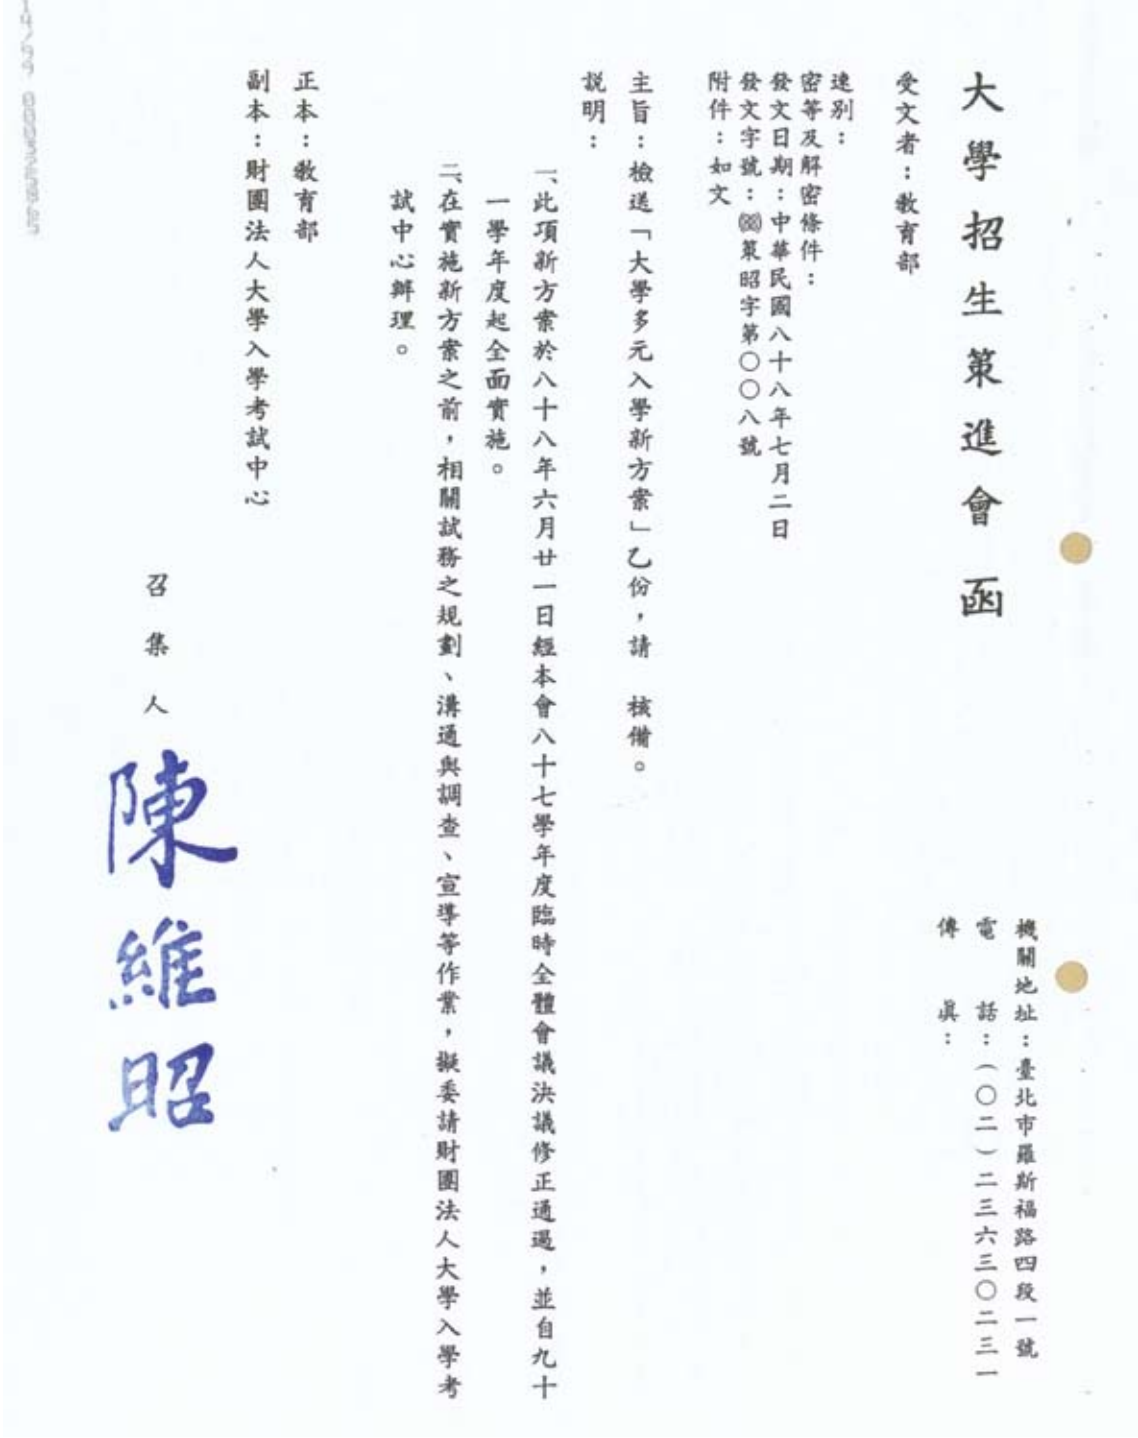 大學招生策進會 函
機關地址：臺北市羅斯福路四段一號
電　　話：（〇二）二三六三〇二三一
傳　　真：
受文者：教育部
速別：
密等及解密條件：
發文日期：中華民國八十八年七月二日
發文字號：㊇策昭字第〇〇八號
附件：如文
主旨：檢送「大學多元入學新方案」乙份，請　核備。
說明：
一、此項新方案於八十八年六月廿一日經本會八十七學年度臨時全體會議決議修正通過，並自九十
一學年度起全面實施。
二、在實施新方案之前，相關試務之規劃、溝通與調查、宣導等作業，擬委請財團法人大學入學考
試中心辦理。
正本：教育部
副本：財團法人大學入學考試中心
召集人 陳維昭